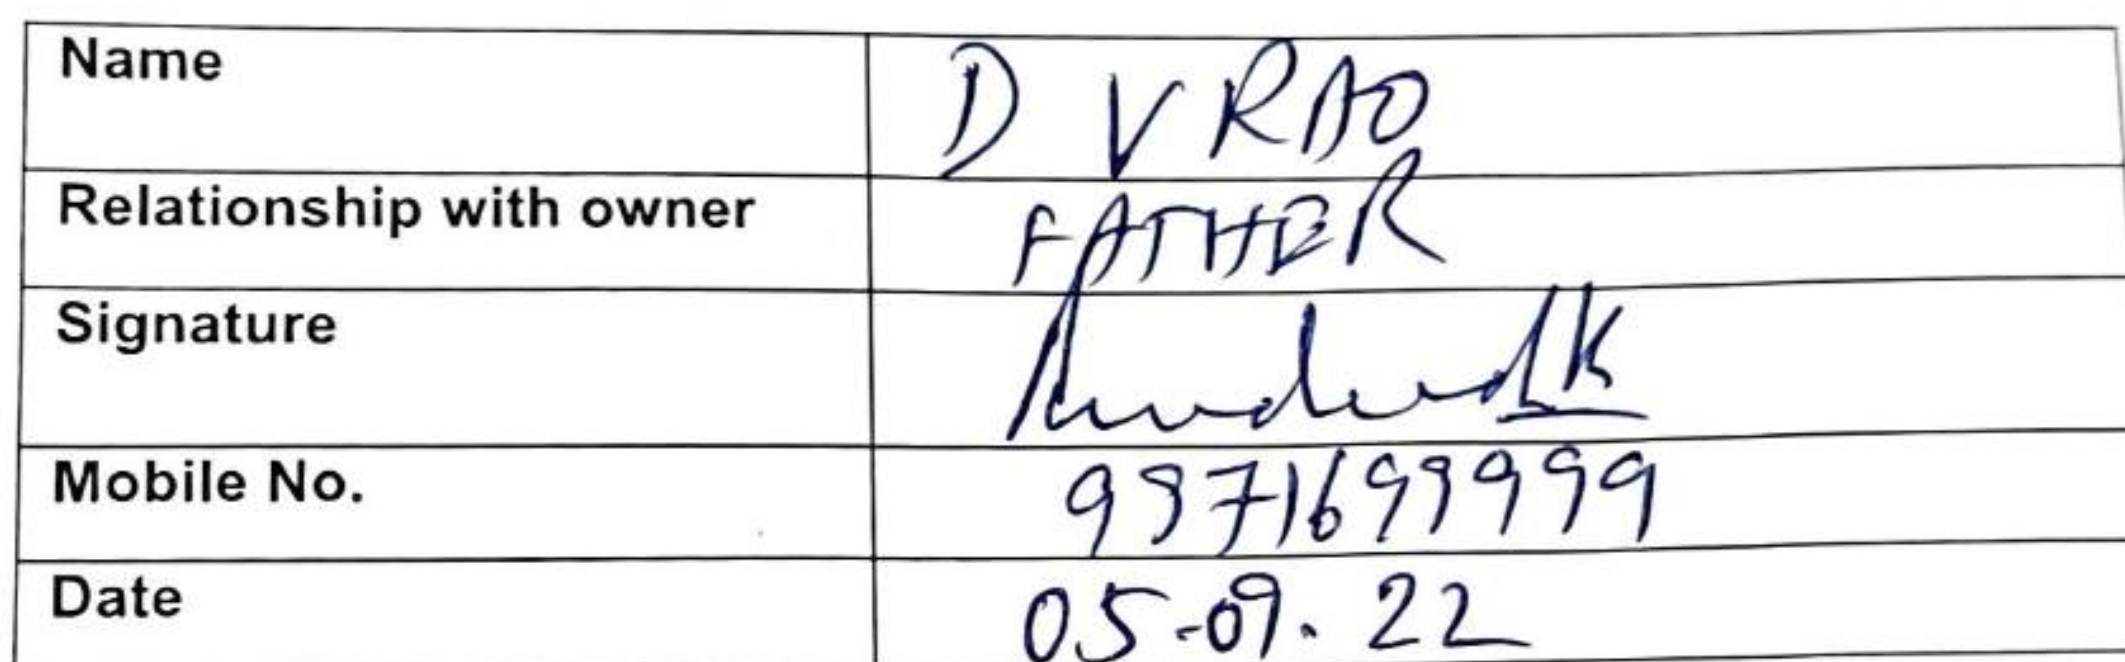 Name D V RAO
Relationship with owner FATHER
Signature
Mobile No. 9971699999
Date 05-09.22